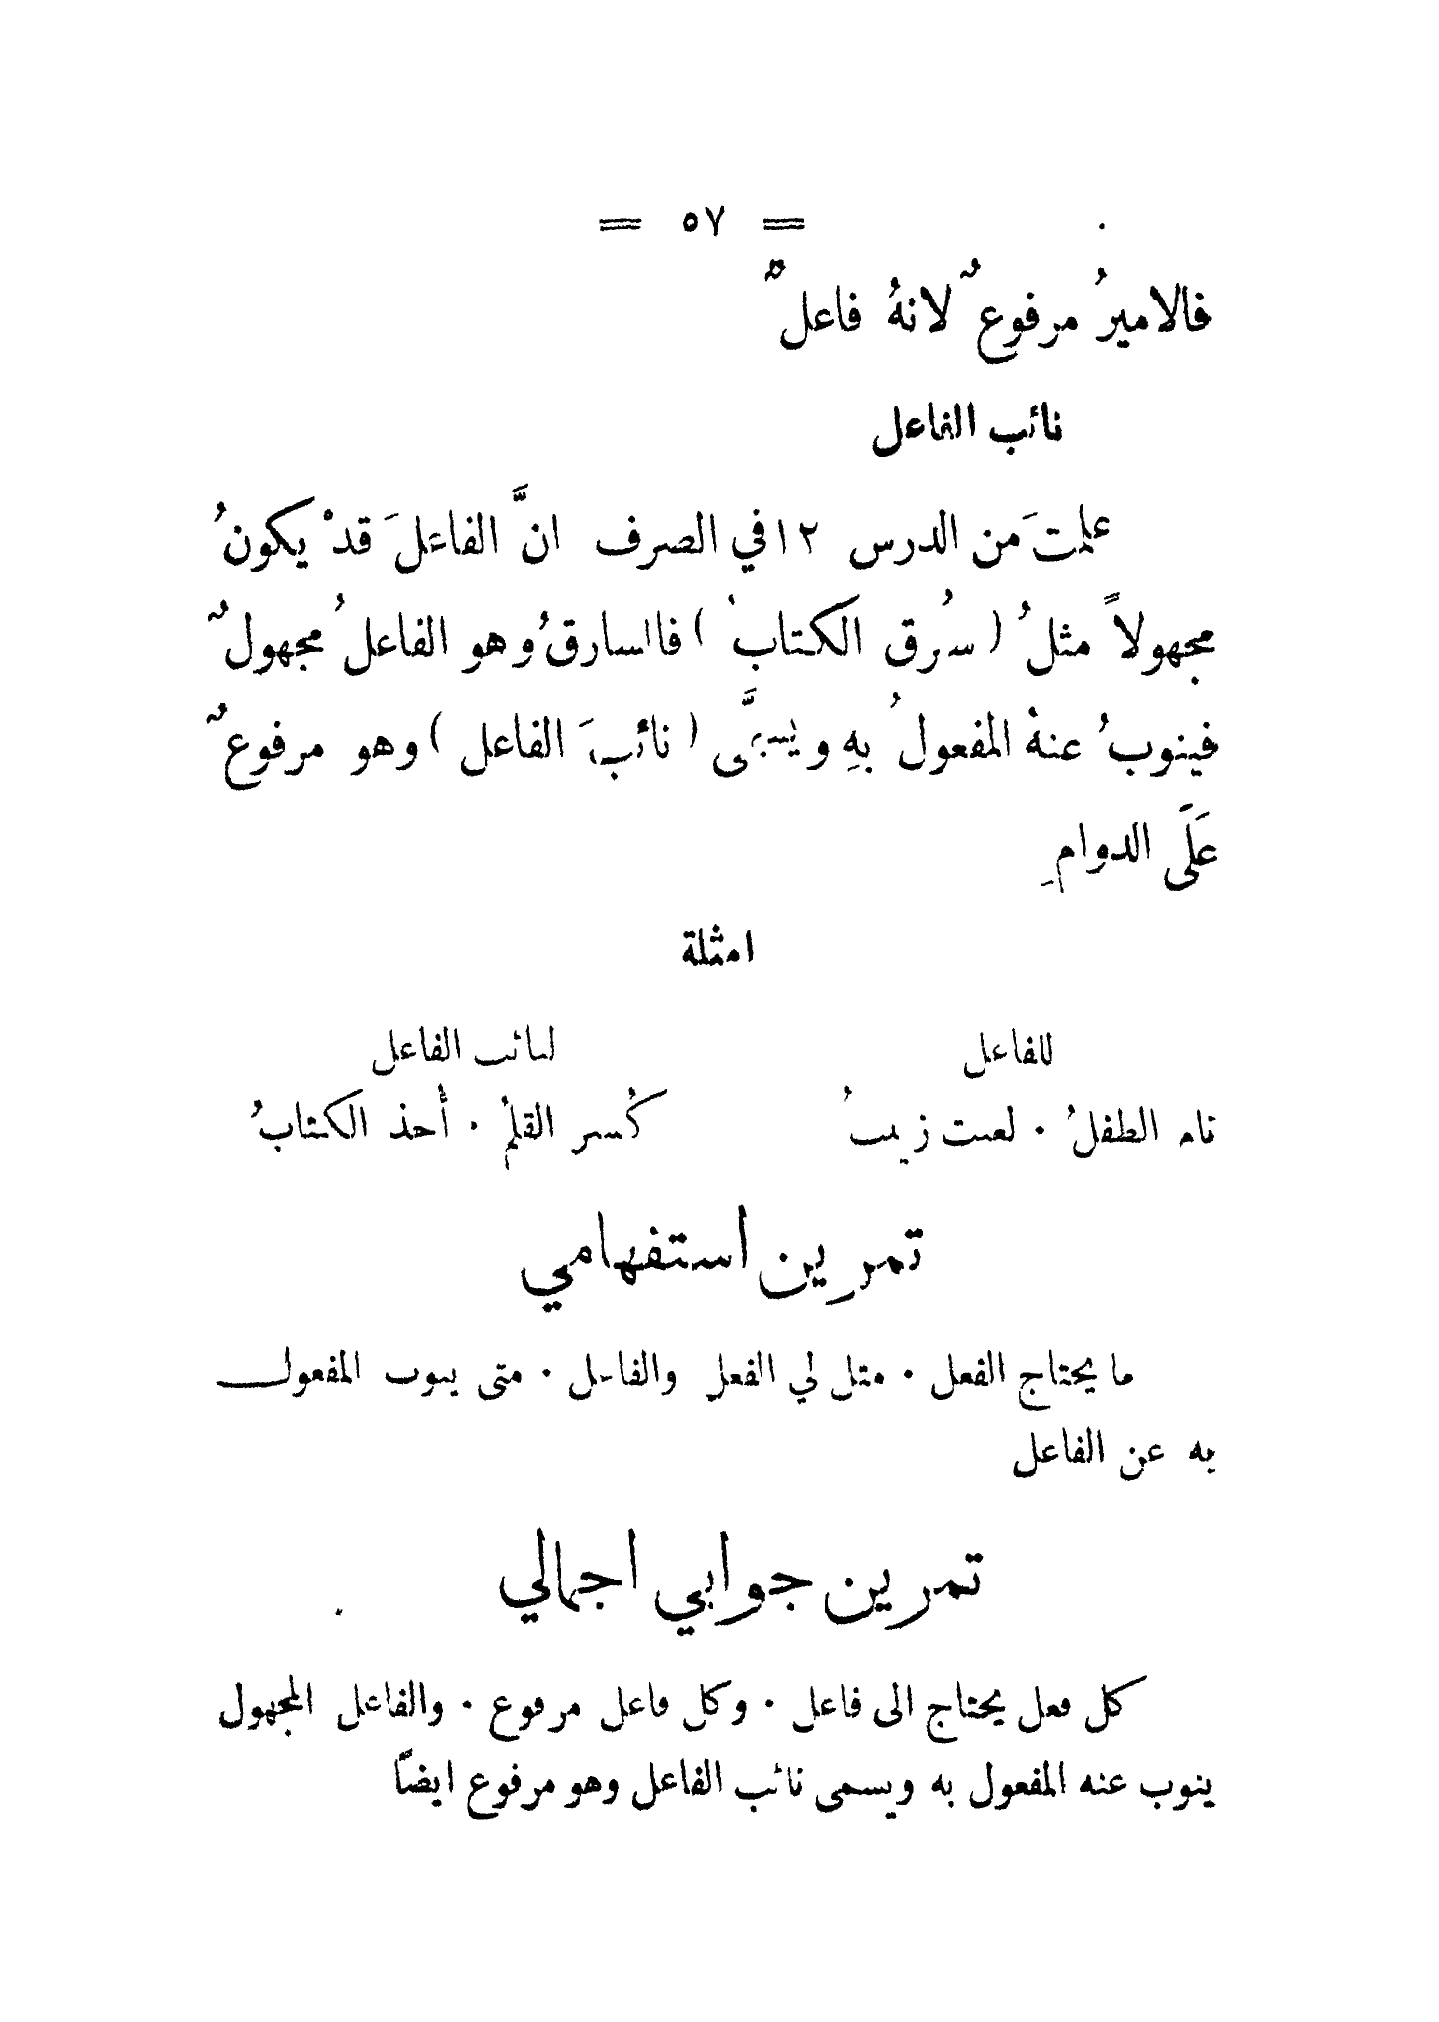 = ٥٧ =
فالاميرُ مرفوعٌ لانهُ فاعلٌ
نائب الفاعل
علمتَ من الدرس ١٢ في الصرف انَّ الفاعلَ قدْ يكونُ
مجهولاً مثلُ ( سُرق الكتابُ ) فالسارقُ وهو الفاعلُ مجهولٌ
فينوبُ عنهُ المفعولُ بهِ ويسمَّى ( نائبَ الفاعل ) وهو مرفوعٌ
عَلَى الدوامِ
امثلة
للفاعل
لنائب الفاعل
نام الطفلُ ٠ لعبت زينبُ
كُسر القلمُ ٠ أُخذ الكتابُ
تمرين استفهامي
ما يحتاج الفعل ٠ مثل لي الفعل والفاعل ٠ متى ينوب المفعول
به عن الفاعل
تمرين جوابي اجمالي
كل فعل يحتاج الى فاعل ٠ وكل فاعل مرفوع ٠ والفاعل المجهول
ينوب عنه المفعول به ويسمى نائب الفاعل وهو مرفوع ايضاً